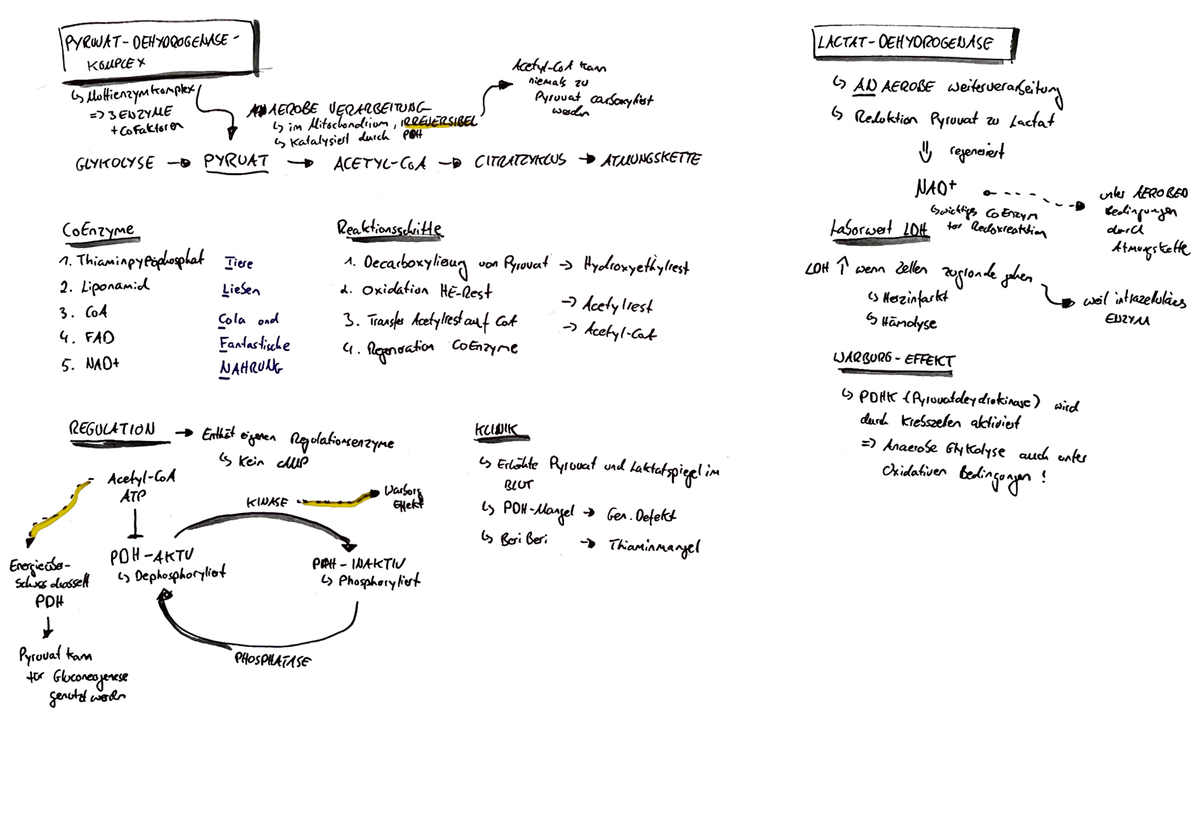 PYRUVAT-DEHYDROGENASE-
KOMPLEX
↳ Multienzymkomplex
=> 3 ENZYME
+ CoFaktoren
AEROBE VERARBEITUNG
↳ im Mitochondrium, IRREVERSIBEL
↳ Katalysiert durch PDH
Acetyl-CoA kann
niemals zu
Pyruvat carboxyliert
werden
GLYKOLYSE → PYRUAT → ACETYL-CoA → CITRATZYKLUS → ATMUNGSKETTE
CoEnzyme
1. Thiaminpyrophosphat Tiere
2. Liponamid Ließen
3. CoA Cola und
4. FAD Fantastische
5. NAD+ NAHRUNG
Reaktionsschritte
1. Decarboxylierung von Pyruvat → Hydroxyethylrest
2. Oxidation HE-Rest → Acetylrest
3. Transfer Acetylrest auf CoA → Acetyl-CoA
4. Regeneration CoEnzyme
REGULATION → Enthält eigenen Regulationsenzyme
↳ Kein cAMP
Acetyl-CoA
ATP
KINASE
Warburg
Effekt
PDH-AKTIV
↳ Dephosphoryliert
PDH-INAKTIV
↳ Phosphoryliert
PHOSPHATASE
Energieüber-
schuss drosselt
PDH
Pyruvat kann
für Gluconeogenese
genutzt werden
KLINIK
↳ Erhöhte Pyruvat und Laktatspiegel im
BLUT
↳ PDH-Mangel → Gen. Defekt
↳ BeriBeri → Thiaminmangel
LACTAT-DEHYDROGENASE
↳ ANAEROBE weiterverarbeitung
↳ Reduktion Pyruvat zu Lactat
⇓ regeneriert
NAD+
↳ wichtiges CoEnzym
für Redoxreaktion
unter AEROBEN
Bedingungen
durch
Atmungskette
Laborwert LDH
LDH ↑ wenn Zellen zugrunde gehen
↳ Herzinfarkt
↳ Hämolyse
weil intrazelluläres
ENZYM
WARBURG-EFFEKT
↳ PDHK (Pyruvatdeydrokinase) wird
durch Krebszellen aktiviert
=> Anaerobe Glykolyse auch unter
Oxidativen Bedingungen!